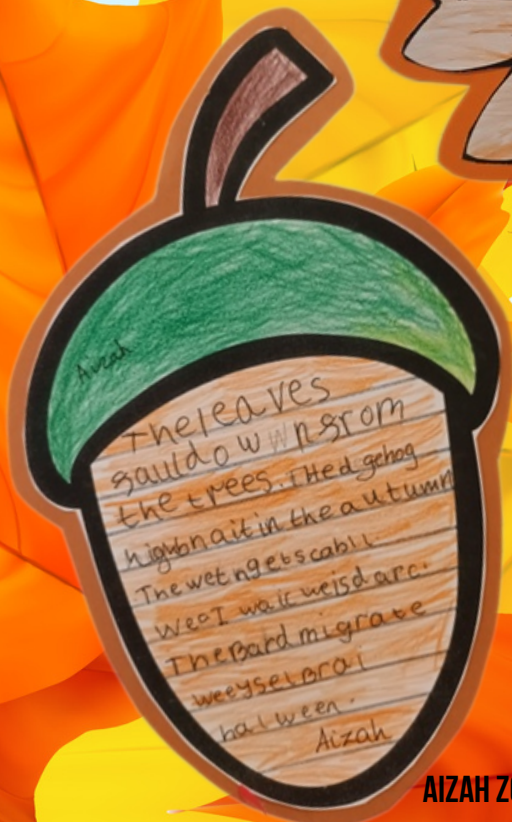 Aizah
The leaves
gauld o w w n grom
the trees. the Hedgehog
highbnait in the autumn
The wet ngets cabll.
WeoI waic weisd arc.
The Bard migrate
weeyselBrai
halween.
Aizah
AIZAH Z